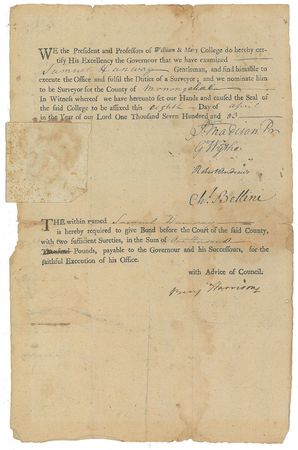 WE the President and Professors of William & Mary College do hereby certify
His Excellency the Governour that we have examined
Samuel Hanway Gentleman, and find him able to
execute the Office and fulfil the Duties of a Surveyor; and we nominate him
to be Surveyor for the County of Monongahala
In Witness whereof we have hereunto set our Hands and caused the Seal of
the said College to be affixed this Eighth Day of April
in the Year of our Lord One Thousand Seven Hundred and 83
J. Madison Pr
G Wythe
Robt Andrews
Chs Bellini
THE within named Samuel
is hereby required to give Bond before the Court of the said County,
with two sufficient Sureties, in the Sum of
Thousand Pounds, payable to the Governour and his Successours, for the
faithful Execution of his Office.
with Advice of Council.
Benj Harrison